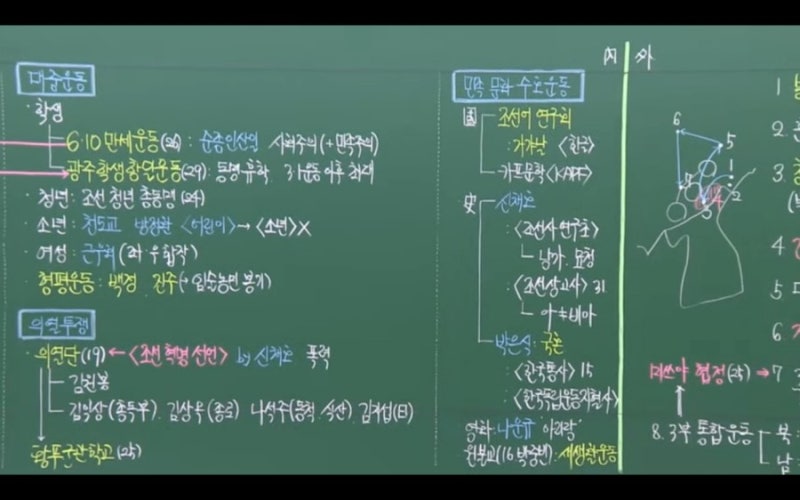 대중운동
· 학생
6·10 만세운동(26) : 순종인산일 사회주의(+민족주의)
광주학생항일운동(29) : 동맹 휴학 3·1운동 이후 최대
· 청년 : 조선 청년 총동맹(24)
· 소년 : 천도교 방정환 〈어린이〉→〈소년〉X
· 여성 : 근우회 (좌·우 합작)
· 형평운동 : 백정 진주(→임술농민 봉기)
의열투쟁
· 의열단(19) ← 〈조선 혁명 선언〉 by 신채호 폭력
김원봉
김익상(총독부) 김상옥(종로) 나석주(동척 식산) 김지섭(日)
황푸군관학교(25)
민족 문화 수호운동
조선어 연구회
: 가갸날 〈한글〉
카프문학〈KAPF〉
史 신채호
: 〈조선사 연구초〉
낭가 묘청
: 〈조선상고사〉 31
아 ≠ 비아
박은식 : 국혼
: 〈한국통사〉 15
〈한국독립운동지혈사〉
영화 : 나운규 아리랑
원불교(16 박중빈) : 새생활운동
內 外
6
5
1
2
3
4
1
2
3
4
5
6
미쓰야 협정(25) → 7
8. 3부 통합운동
북 :
남 :